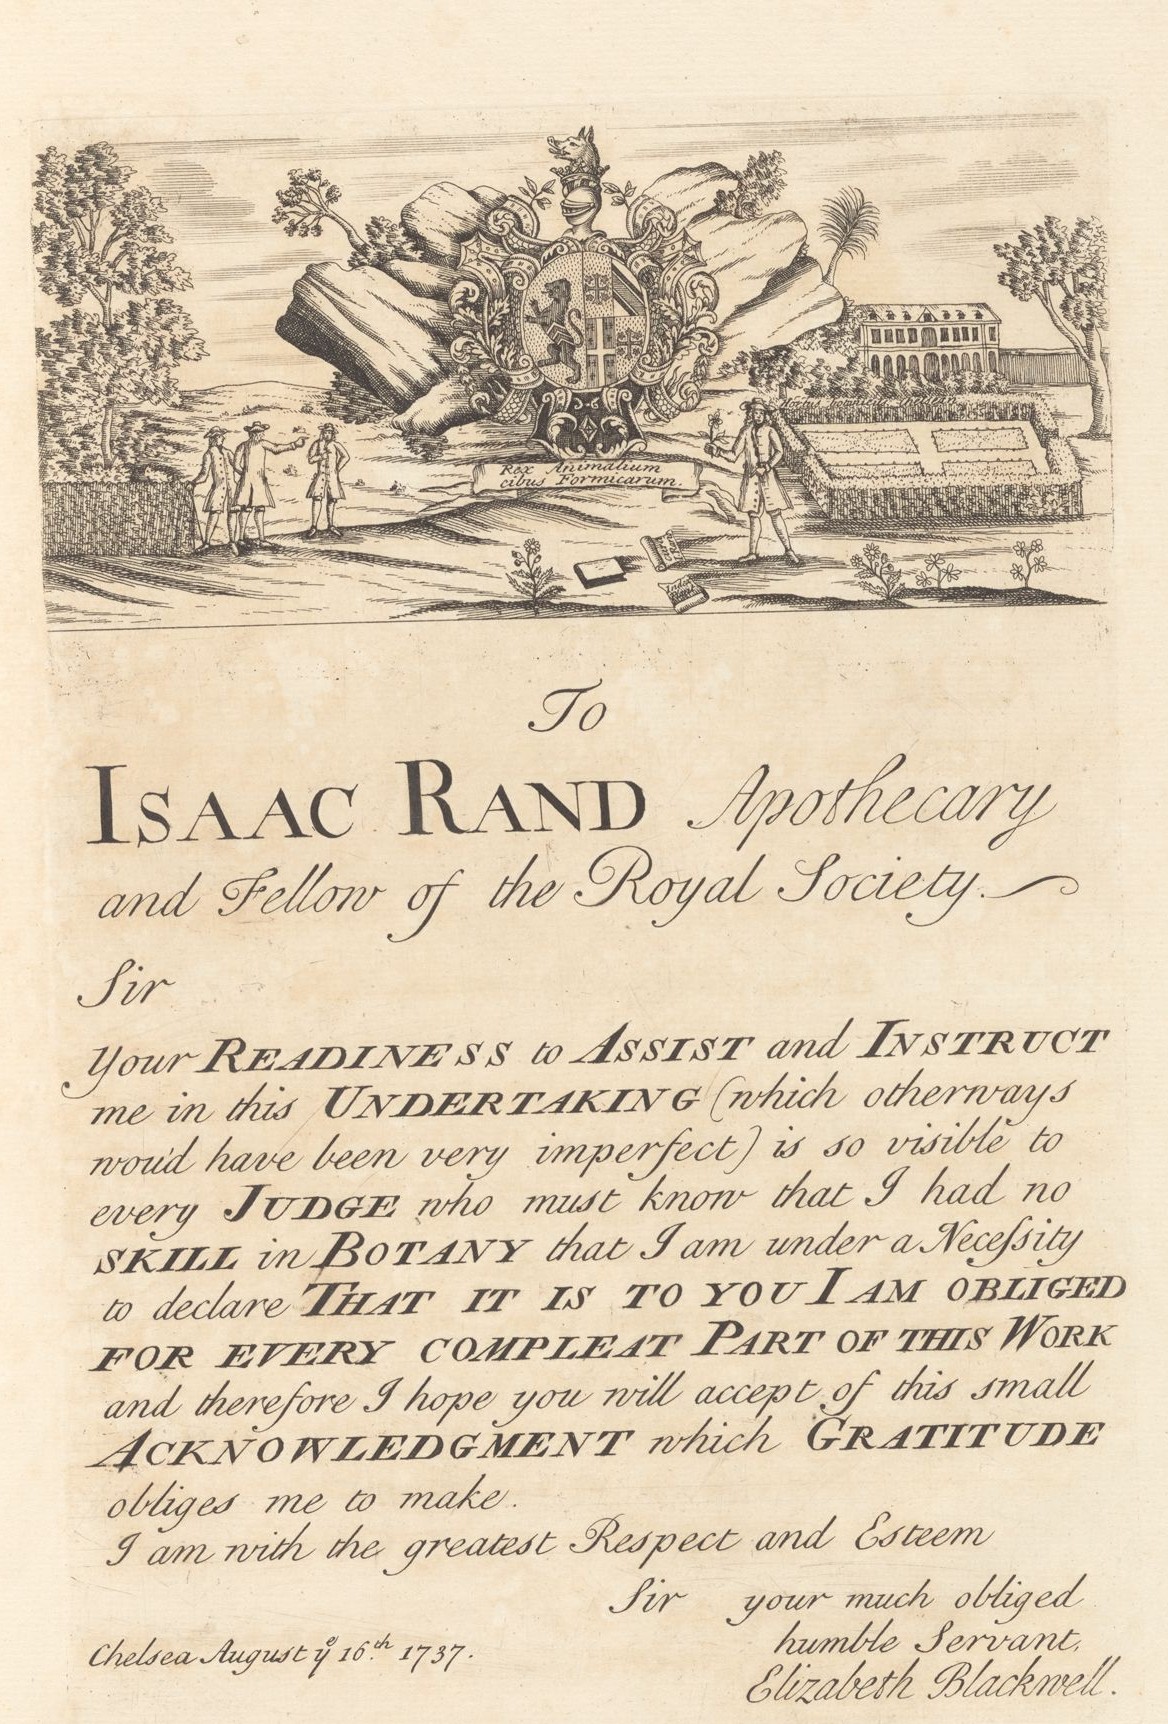 Rex Animalium
cibus Formicarum.
To
ISAAC RAND Apothecary
and Fellow of the Royal Society.
Sir
Your READINESS to ASSIST and INSTRUCT
me in this UNDERTAKING (which otherways
wou'd have been very imperfect) is so visible to
every JUDGE who must know that I had no
SKILL in BOTANY that I am under a Neceſsity
to declare THAT IT IS TO YOU I AM OBLIGED
FOR EVERY COMPLEAT PART OF THIS WORK
and therefore I hope you will accept of this small
ACKNOWLEDGMENT which GRATITUDE
obliges me to make.
I am with the greatest Respect and Esteem
Sir your much obliged
humble Servant,
Chelsea August yͤ 16.th 1737.
Elizabeth Blackwell.